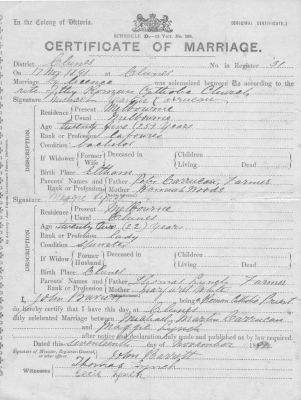 In the Colony of Victoria.
[ORIGINAL CERTIFICATE.]
SCHEDULE D.
CERTIFICATE OF MARRIAGE.
District Clunes No. in Register 31
On 17 Nov 1891 at Clunes
Marriage by License was solemnized between Us according to the
rites of the Roman Catholic Church
Signature Michael Martin Carrucan
Residence Present Melbourne
Usual Melbourne
Age twenty five (25) years
Rank or Profession
Condition bachelor
If Widower Former Wife Deceased Children Living Dead
Birth Place Eltham
Parents' Names and Father Peter Carrucan Farmer
Rank or Profession Mother Hannah Woods
Signature Maggie Lynch
Residence Present Melbourne
Usual Clunes
Age twenty two (22) years
Rank or Profession lady
Condition spinster
If Widow Former Husband Deceased Children Living Dead
Birth Place Clunes
Parents' Names and Father Thomas Lynch Farmer
Rank or Profession Mother Margaret White
I, John Barrett being a Roman Catholic Priest
do hereby certify that I have this day, at Clunes
duly celebrated Marriage between Michael Martin Carrucan
and Maggie Lynch
after notice and declaration duly made and published as by law required.
Dated this seventeenth day of November
Signature of Minister, Registrar-General, or other officer. John Barrett
Witnesses Thomas Lynch
Lynch
DESCRIPTION.
DESCRIPTION.